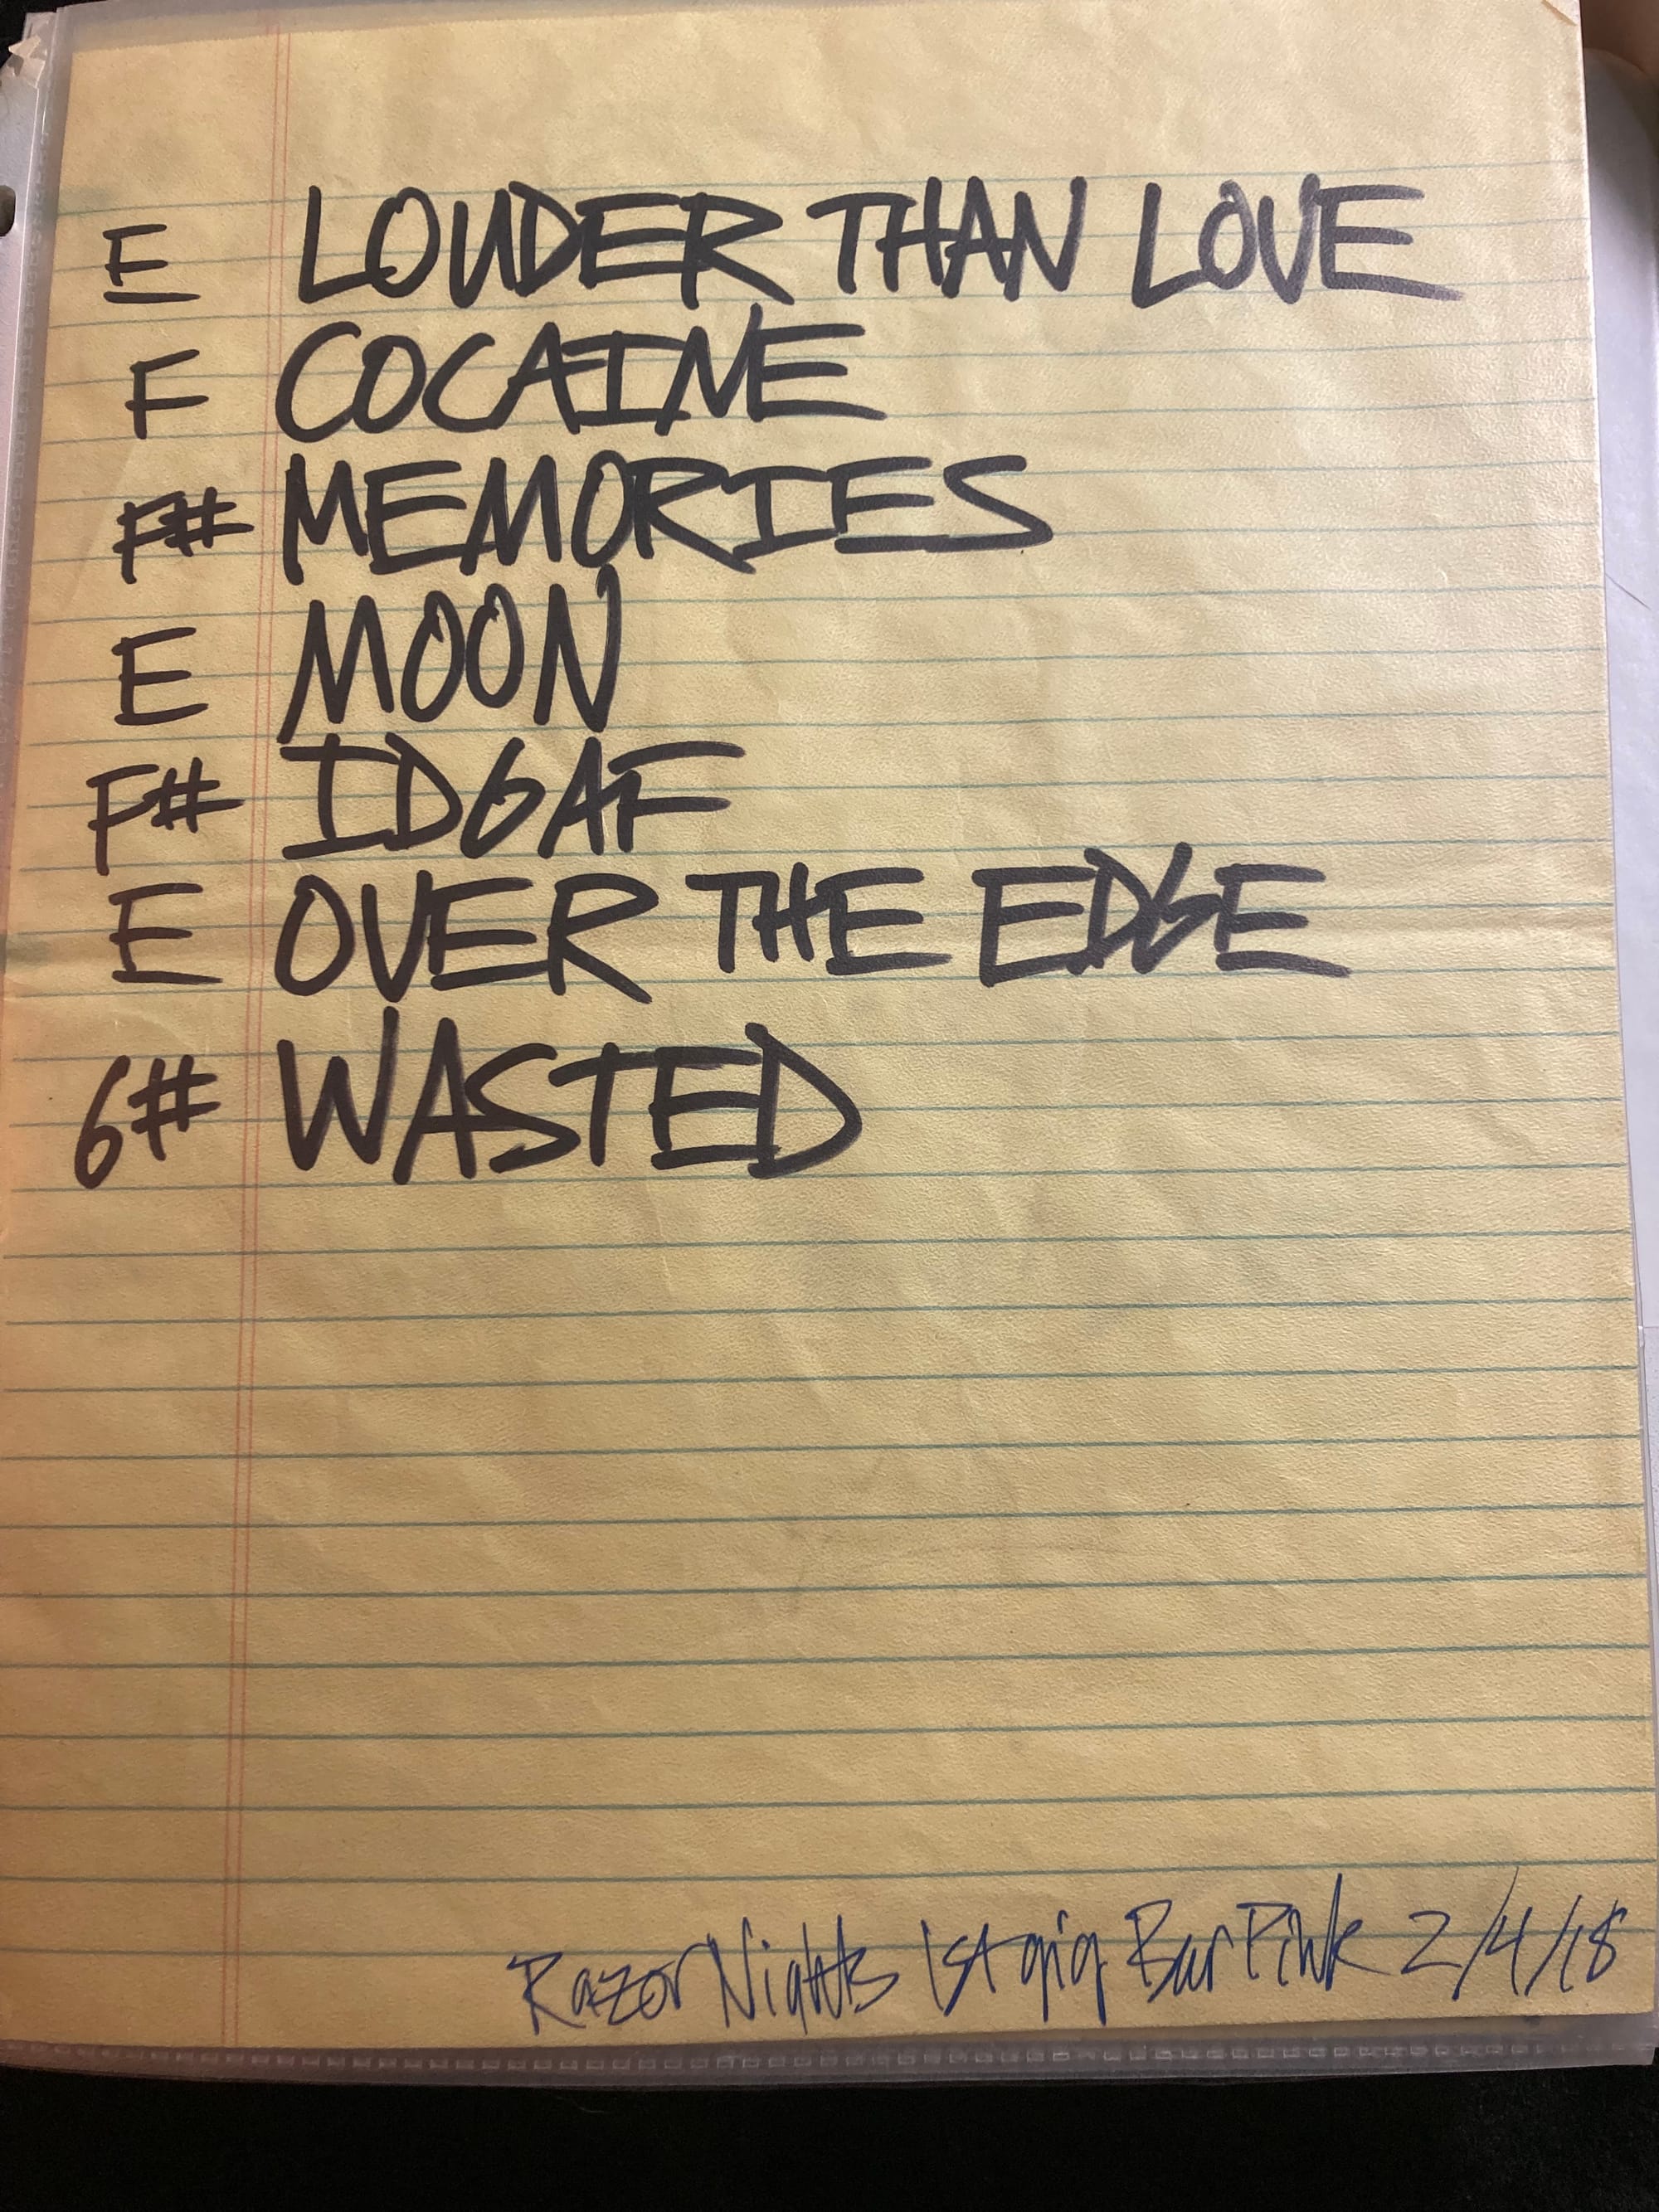 E LOUDER THAN LOVE
F COCAINE
F# MEMORIES
E MOON
F# IDGAF
E OVER THE EDGE
G# WASTED
Razor Nights 1st gig Bar Pink 2/4/18